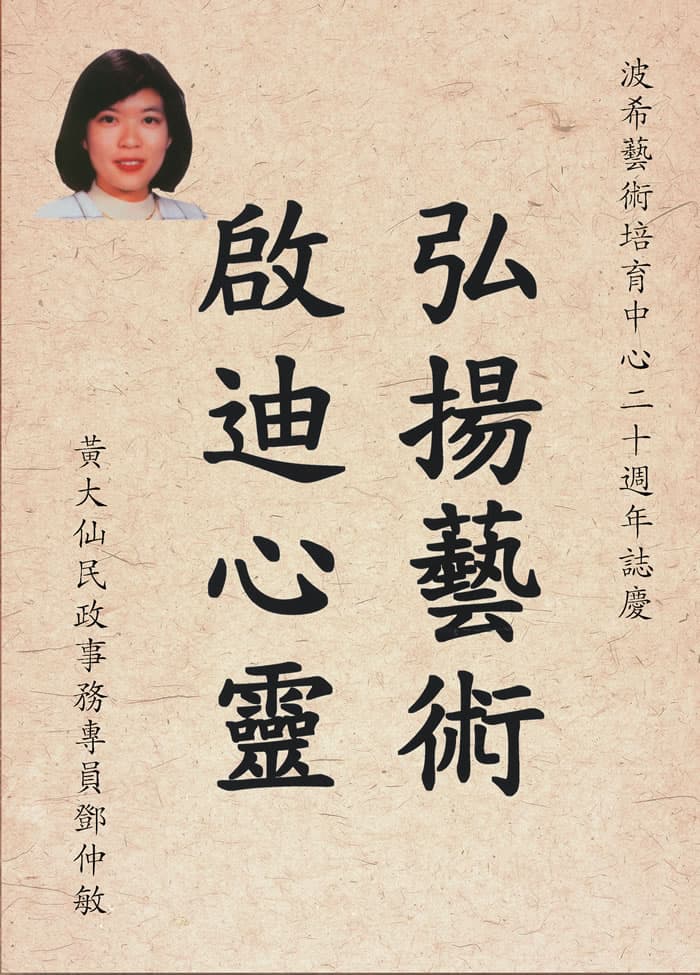 波希藝術培育中心二十週年誌慶
弘揚藝術
啟迪心靈
黃大仙民政事務專員鄧仲敏